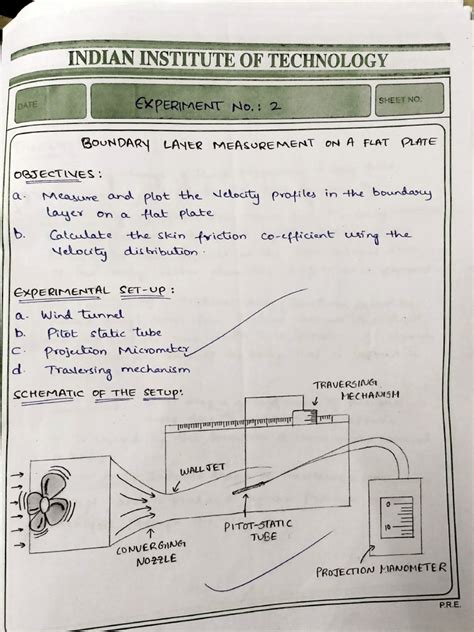 INDIAN INSTITUTE OF TECHNOLOGY
DATE
EXPERIMENT NO.: 2
SHEET NO.
BOUNDARY LAYER MEASUREMENT ON A FLAT PLATE
OBJECTIVES:
a. Measure and plot the velocity profiles in the boundary
layer on a flat plate
b. Calculate the skin friction co-efficient using the
velocity distribution.
EXPERIMENTAL SET-UP:
a. Wind tunnel
b. Pitot static tube
c. Projection Micrometer
d. Traversing mechanism
SCHEMATIC OF THE SETUP:
TRAVERSING
MECHANISM
WALL JET
0
10
PITOT-STATIC
TUBE
CONVERGING
NOZZLE
PROJECTION MANOMETER
P.R.E.